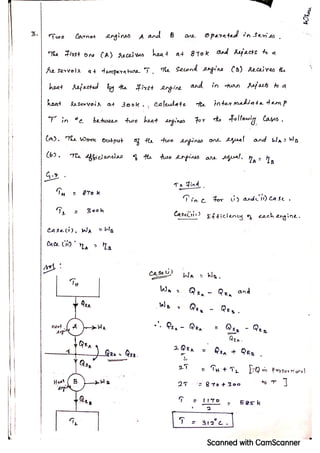 3. Two Carnot engines A and B are operated in series.
The first one (A) receives heat at 870k and Rejects to a
Reservoir at temperature T. The second engine (B) Receives the
heat Rejected by the first engine and in turn Rejects to a
heat Reservoir at 300k. calculate the intermediate temp
T in °c between two heat engines for the following Cases.
(a). The work output of the two engines are equal and WA = WB
(b). The efficiencies of the two engines are equal. ηA = ηB
TH = 870k
TL = 300k
Case (i), WA = WB
Case (ii) ηA = ηB
To Find.
T in c For (i) and (ii) Case.
Efficiency of each engine.
Sol:
TH
Heat A WA
Heat B WB
TL
Case (i) WA = WB.
and
2T = TH + TL
2T = 870 + 300
T = 1170 / 2 = 585k
T = 312°C.
Scanned with CamScanner